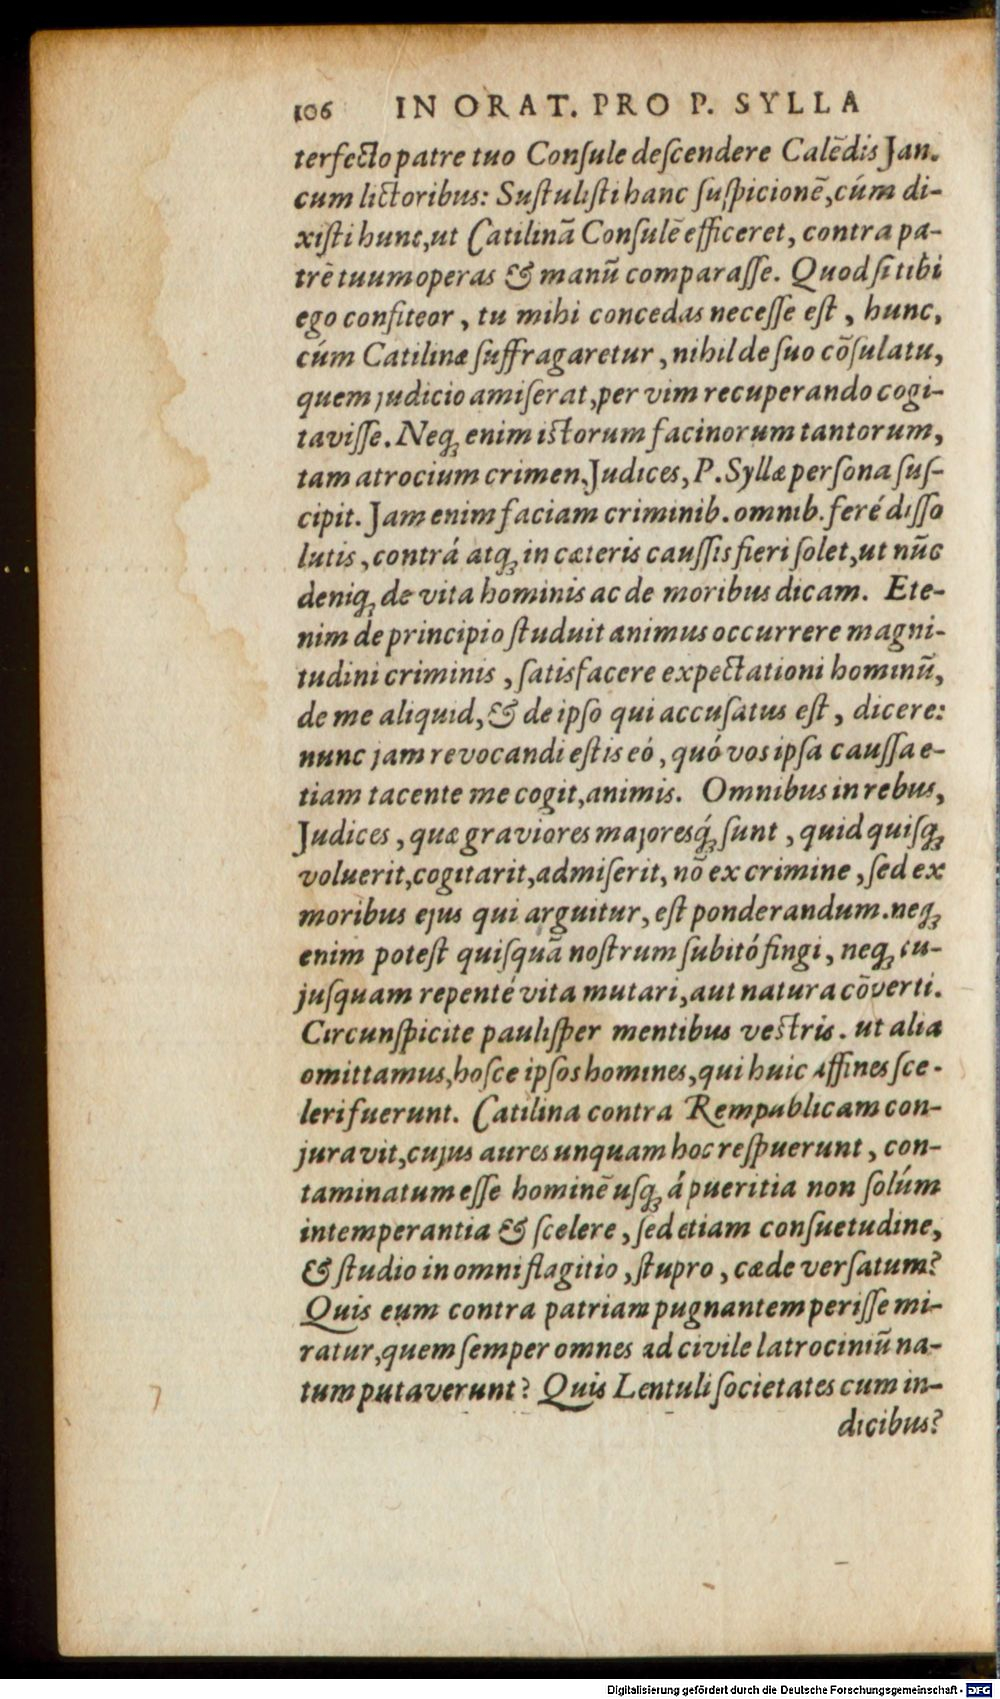 106 IN ORAT. PRO P. SYLLA
terfecto patre tuo Conſule deſcendere Calēdis Jan.
cum lictoribus: Suſtuliſti hanc ſuſpicionē, cúm di-
xiſti hunc, ut Catilinā Conſulē efficeret, contra pa-
trē tuum operas & manū comparaſſe. Quod ſi tibi
ego confiteor, tu mihi concedas neceſſe eſt, hunc,
cúm Catilinæ ſuffragaretur, nihil de ſuo cōſulatu,
quem judicio amiſerat, per vim recuperando cogi-
taviſſe. Neq; enim iſtorum facinorum tantorum,
tam atrocium crimen, Judices, P. Syllæ perſona ſuſ-
cipit. Jam enim faciam criminib. omnib. feré diſſo
lutis, contrá atq; in cæteris cauſſis fieri ſolet, ut nūc
deniq; de vita hominis ac de moribus dicam. Ete-
nim de principio ſtuduit animus occurrere magni-
tudini criminis, ſatisfacere expectationi hominū,
de me aliquid, & de ipſo qui accuſatus eſt, dicere:
nunc jam revocandi eſtis eó, quó vos ipſa cauſſa e-
tiam tacente me cogit, animis. Omnibus in rebus,
Judices, quæ graviores majoresq́; ſunt, quid quiſq;
voluerit, cogitarit, admiſerit, nō ex crimine, ſed ex
moribus ejus qui arguitur, eſt ponderandum. neq;
enim poteſt quiſquā noſtrum ſubitó fingi, neq; cu-
juſquam repenté vita mutari, aut natura cōverti.
Circunſpicite pauliſper mentibus veſtris. ut alia
omittamus, hoſce ipſos homines, qui huic affines ſce-
leri fuerunt. Catilina contra Rempublicam con-
juravit, cujus aures unquam hoc reſpuerunt, con-
taminatum eſſe hominē uſq; á pueritia non ſolúm
intemperantia & ſcelere, ſed etiam conſuetudine,
& ſtudio in omni flagitio, ſtupro, cæde verſatum?
Quis eum contra patriam pugnantem periſſe mi-
ratur, quem ſemper omnes ad civile latrociniū na-
tum putaverunt? Quis Lentuli ſocietates cum in-
dicibus?
Digitalisierung gefördert durch die Deutsche Forschungsgemeinschaft - DFG